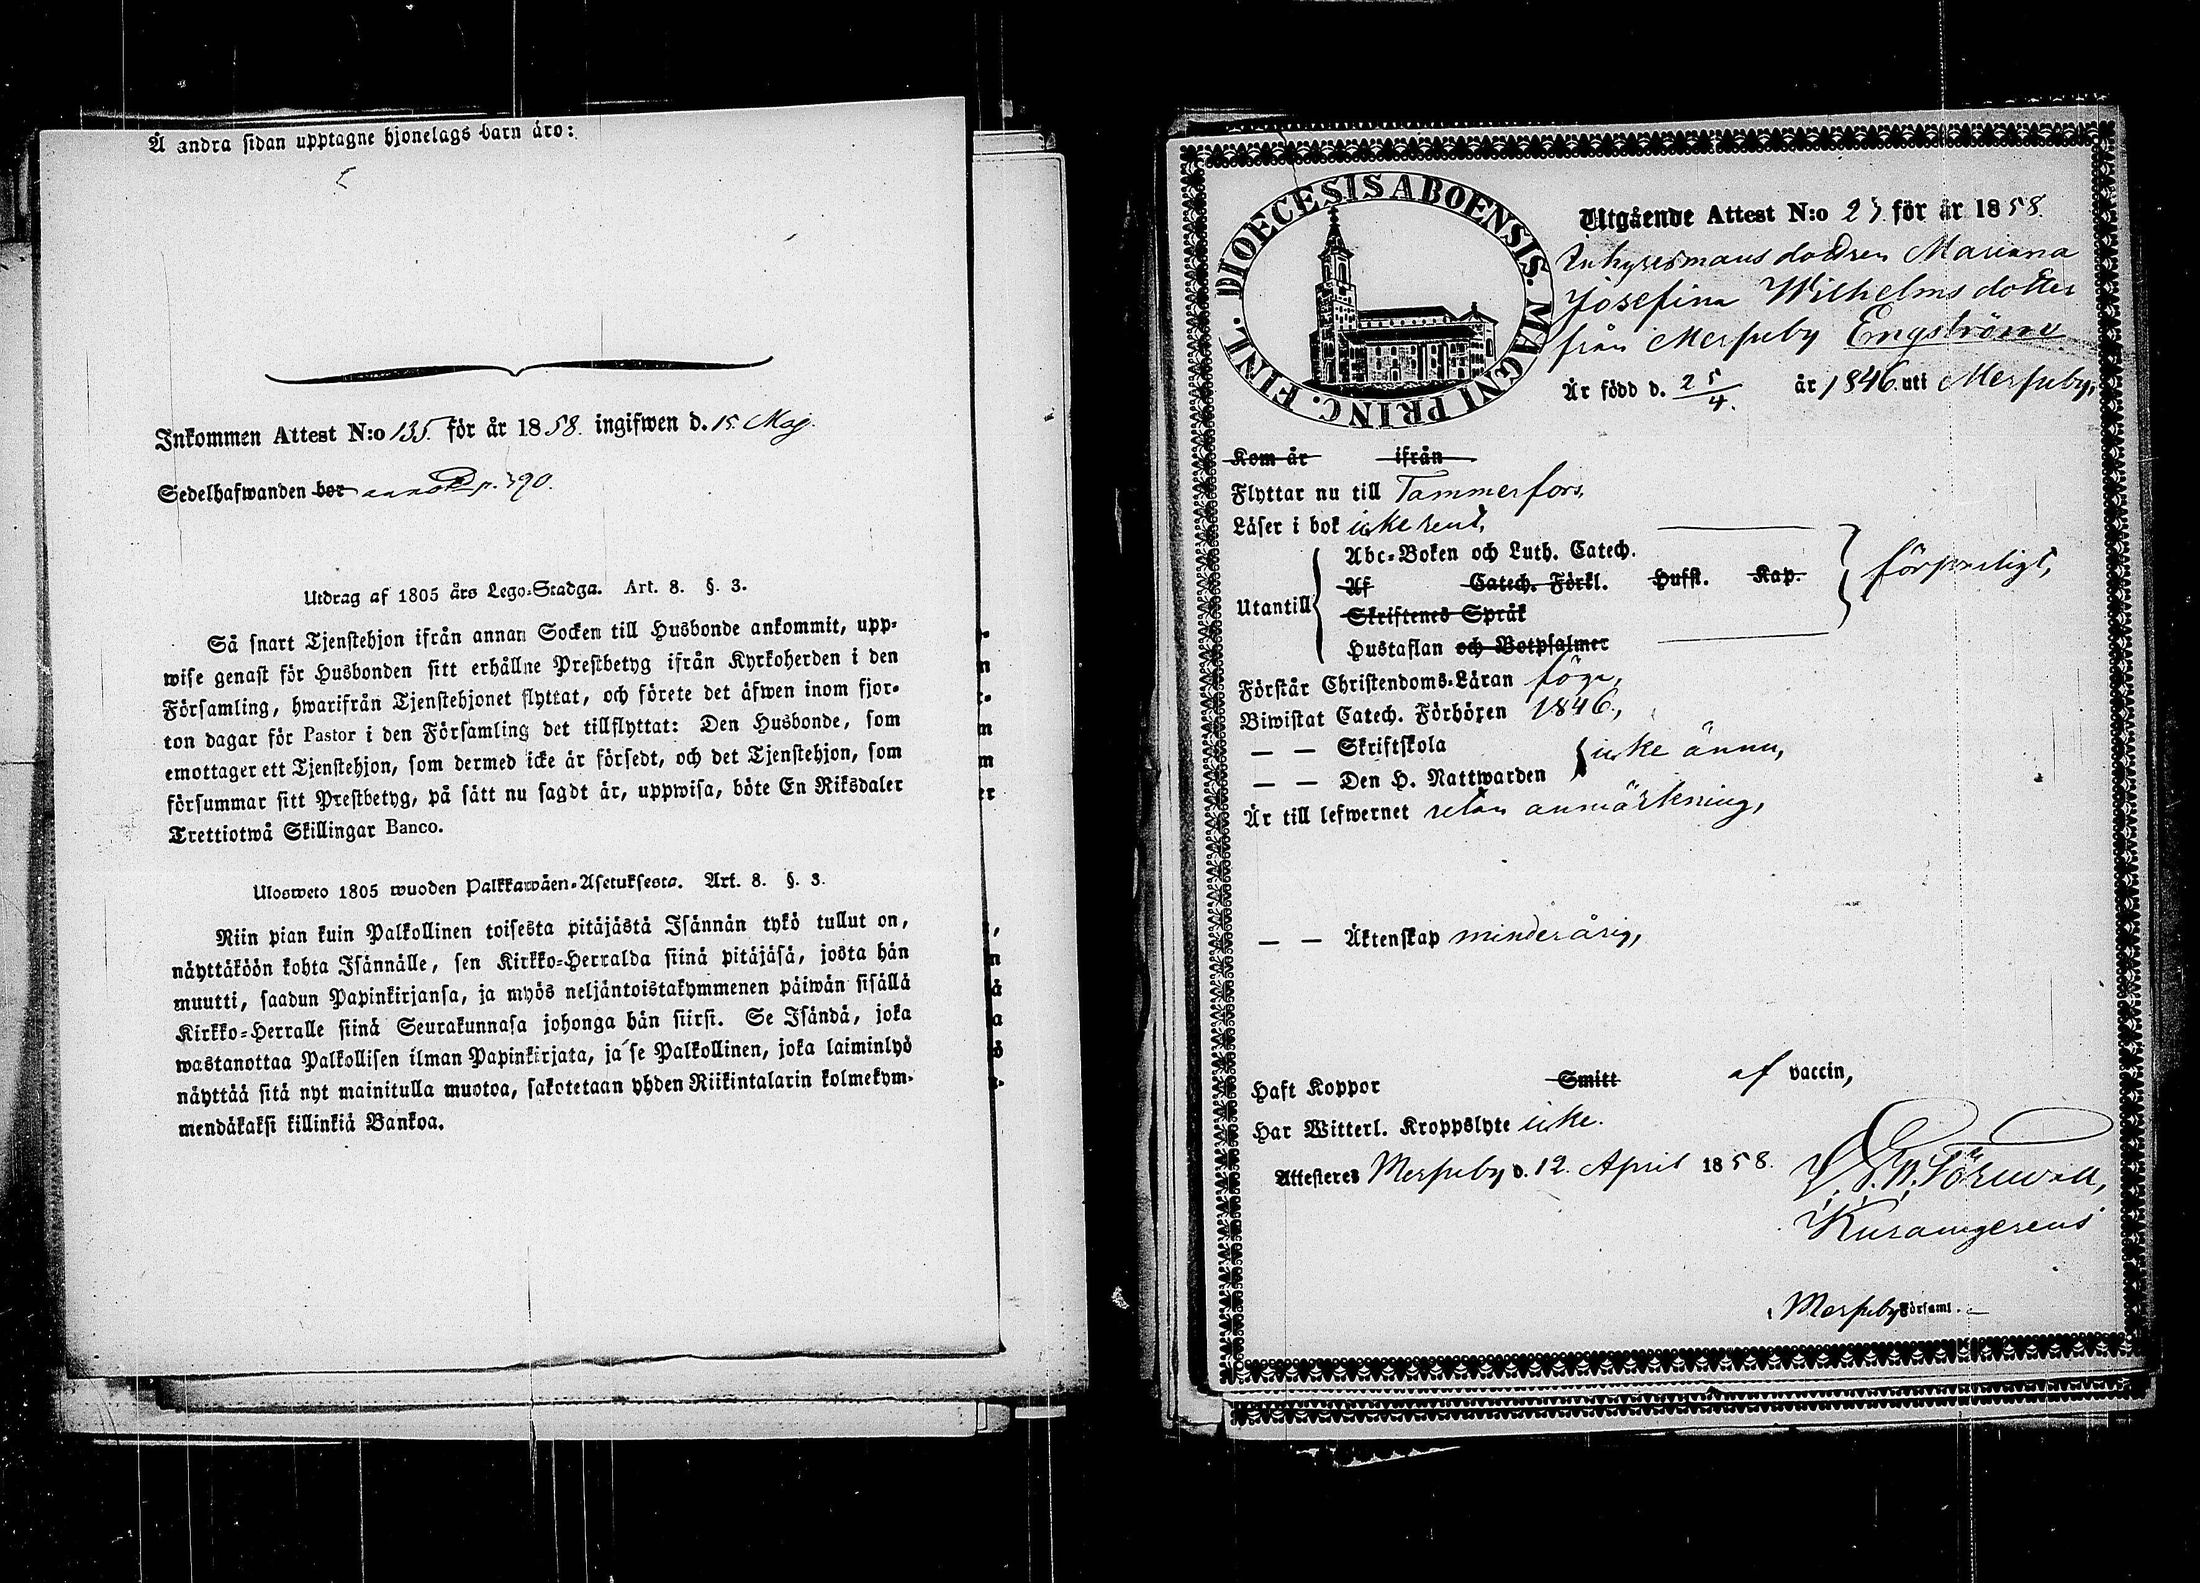 Å andra sidan upptagne hjonelags barn äro:
Inkommen Attest N:o 135. för år 1858. ingifwen d. 15. Maj.
Sedelhafwanden bor p. 390.
Utdrag af 1805 års Lego-Stadga. Art. 8. §. 3.
Så snart Tjenstehjon ifrån annan Socken till Husbonde ankommit, upp-
wise genast för Husbonden sitt erhållne Prestbetyg ifrån Kyrkoherden i den
Församling, hwarifrån Tjenstehjonet flyttat, och förete det äfwen inom fjor-
ton dagar för Pastor i den Församling det tillflyttat: Den Husbonde, som
emottager ett Tjenstehjon, som dermed icke är försedt, och det Tjenstehjon, som
försummar sitt Prestbetyg, på sätt nu sagdt är, uppwisa, böte En Riksdaler
Trettiotwå Skillingar Banco.
Ulosweto 1805 wuoden Palkkawäen-Asetuksesta. Art. 8. §. 3.
Niin pian kuin Palkollinen toisesta pitäjästä Isännän tykö tullut on,
näyttäköön kohta Isännälle, sen Kirkko-Herralda siinä pitäjäsä, josta hän
muutti, saadun Papinkirjansa, ja myös neljäntoistakymmenen päiwän sisällä
Kirkko-Herralle siinä Seurakunnasa johonga hän siirsi. Se Isändä, joka
wastanottaa Palkollisen ilman Papinkirjata, ja se Palkollinen, joka laiminlyö
näyttää sitä nyt mainitulla muotoa, sakotetaan yhden Riikintalarin kolmekym-
mendäkaksi killinkiä Bankoa.
DIOECESIS ABOENSIS. MAGNI PRINC. FINL.
Utgående Attest N:o 23 för år 1858.
Inhysesmansdottren Mariana
Josefina Wilhelmsdotter
från Merituby Engström
Är född d. 25/4. år 1846. uti
Kom år ifrån
Flyttar nu till Tammerfors,
Läser i bok icke rent,
Abc-Boken och Luth. Catech.
Utantill Af Catech. Förkl. Hufst. Kap. försvarligt,
Skriftenes Språk
Hustaflan och Botpsalmer
Förstår Christendoms-Läran föga,
Biwistat Catech. Förhören 1846.,
— — Skriftskola
— — Den H. Nattwarden icke ännu,
Är till lefwernet utan anmärkning,
— — Äktenskap minderårig,
Haft Koppor Smitt af vaccin,
Har Witterl. Kroppslyte icke.
Attesteres d. 12. April 1858.
Törnwall,
Församl.